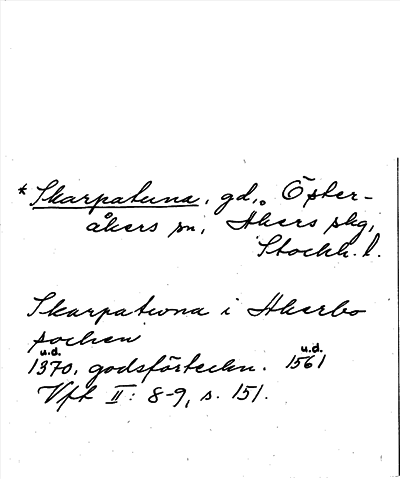 * Skarpatuna, gd., Öster-
åkers sn, Åkers skg,
Stockh. l.
Skarpatwna i Akerbo
sochen
u.d. u.d.
1370, godsförteckn. 1561
Vft II: 8-9, s. 151.